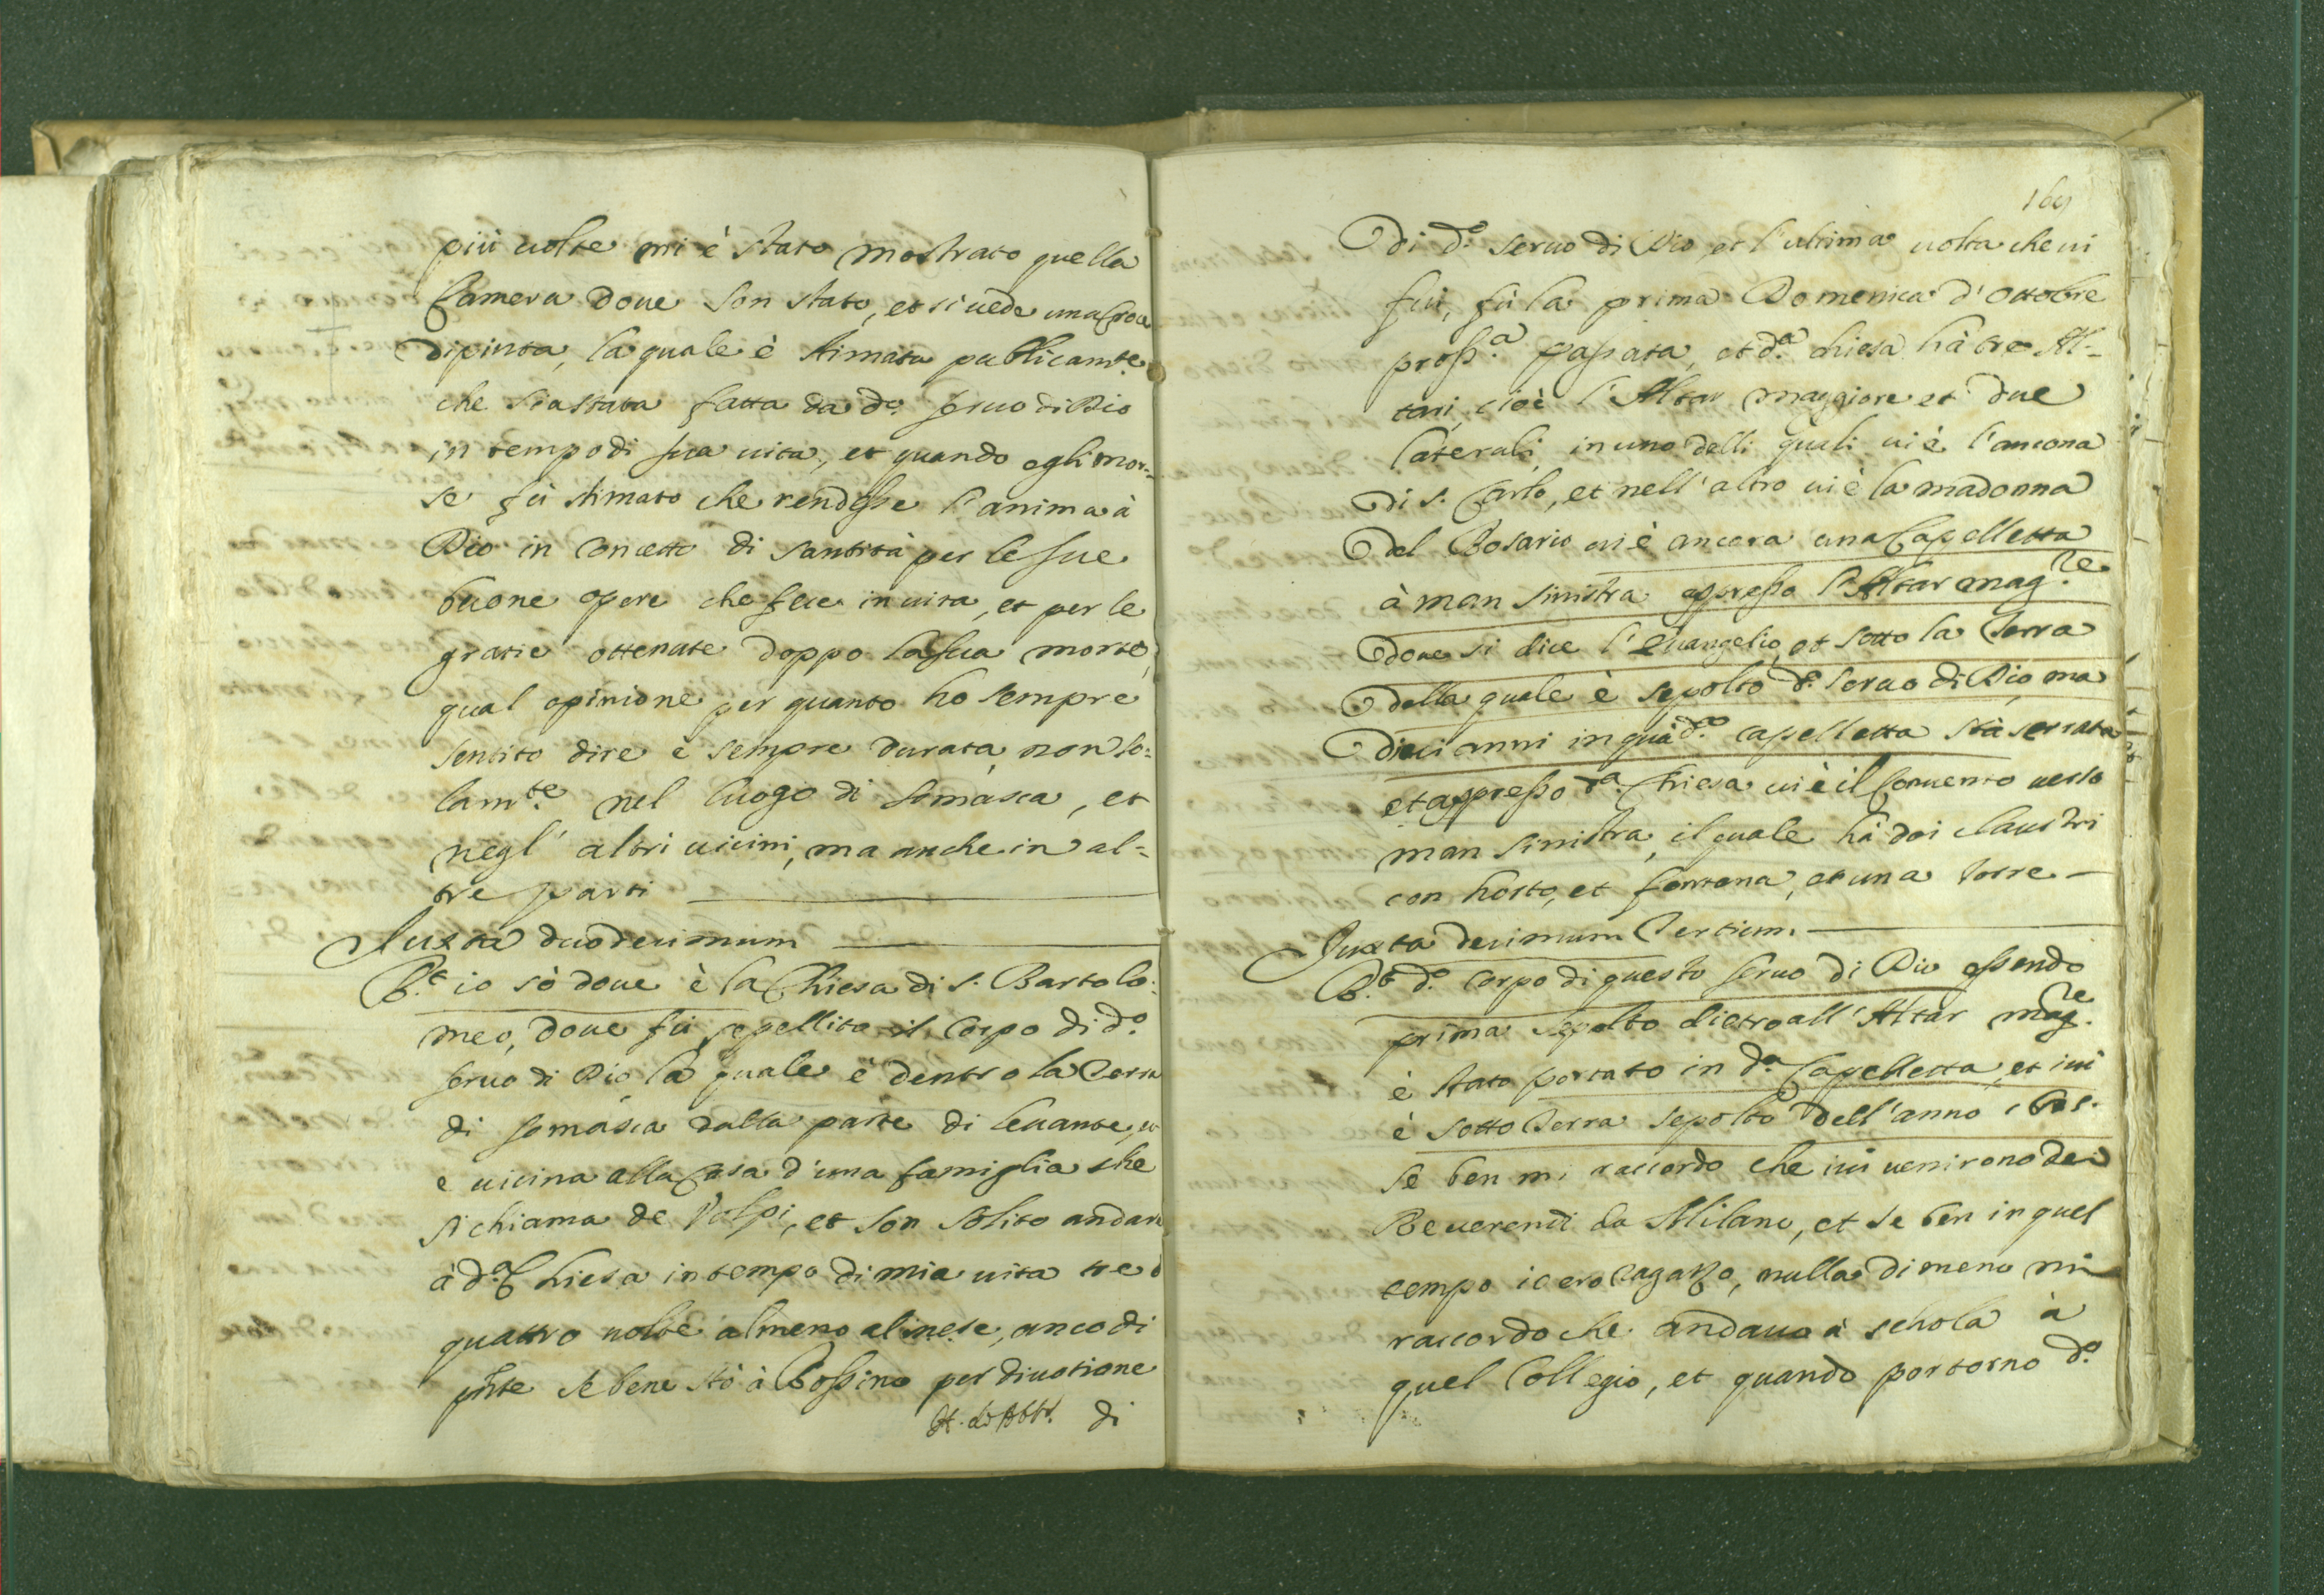 più uolte mi è stato mostrato quella
Camera doue son stato, et si uede una Croce
dipinta, la quale è stimata publicamte.
che sia stata fatta da do. seruo di Dio
in tempo di sua uita, et quando egli mor-
se fù stimato che rendesse l'anima à
Dio in concetto di santità per le sue
buone opere che fece in uita, et per le
gratie ottenute doppo la sua morte,
qual opinione per quanto ho sempre
sentito dire è sempre durata, non so-
lamte. nel luogo di Somasca, et
negl' altri uicini, ma anche in al-
tre parti
Iuxta duodecimum
Rt. io sò doue è la Chiesa di s. Bartolo-
meo, doue fù sepellito il Corpo di do.
seruo di Dio la quale è dentro la Terra
di Somasca dalla parte di leuante,
e uicina alla Casa d'una famiglia che
si chiama de Volpi, et son solito andare
à da. Chiesa in tempo di mia uita tre ò
quattro uolte almeno al mese, anco di
pnte se bene stò à Rossino per diuotione
di
169
di do. seruo di Dio, et l'ultima uolta che ui
fui, fù la prima Domenica d'Ottobre
prossa. passata, et da. chiesa hà tre Al-
tari, cioè l'Altar maggiore et due
laterali, in uno delli quali ui è l'ancona
di s. Carlo, et nell'altro ui è la madonna
del Rosario ui è ancora una Capelletta
à man sinistra appresso l'Altar magre.
doue si dice l'euangelio, et sotto la terra
della quale è sepolto do. seruo di Dio, ma
dieci anni in quà da. capelletta stà serrata
et appresso da. Chiesa ui è il Conuento uerso
man sinistra, il quale hà doi claustri
con horto, et fontana, et una torre
Iuxta decimum tertium.
Rt. do. corpo di questo seruo di Dio essendo
prima sepolto dietro all'Altar magre.
è stato portato in da. Capelletta, et iui
è sotto terra sepolto dell'anno
se ben mi raccordo che iui uenirono dei
Reuerendi da Milano, et se ben in quel
tempo io ero ragazzo, nulla di meno mi
raccordo che andauo à schola à
quel Collegio, et quando portorno do.